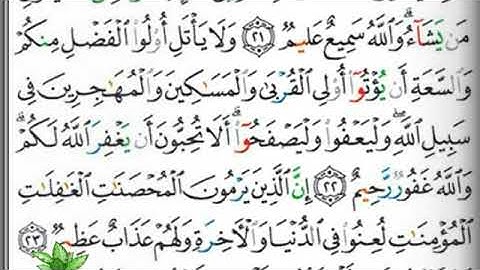 مَن يَشَآءُ وَٱللَّهُ سَمِيعٌ عَلِيمٌ ﴿٢١﴾ وَلَا يَأْتَلِ أُو۟لُوا۟ ٱلْفَضْلِ مِنكُمْ
وَٱلسَّعَةِ أَن يُؤْتُوٓا۟ أُو۟لِى ٱلْقُرْبَىٰ وَٱلْمَسَـٰكِينَ وَٱلْمُهَـٰجِرِينَ فِى
سَبِيلِ ٱللَّهِ ۖ وَلْيَعْفُوا۟ وَلْيَصْفَحُوٓا۟ ۗ أَلَا تُحِبُّونَ أَن يَغْفِرَ ٱللَّهُ لَكُمْ ۗ
وَٱللَّهُ غَفُورٌ رَّحِيمٌ ﴿٢٢﴾ إِنَّ ٱلَّذِينَ يَرْمُونَ ٱلْمُحْصَنَـٰتِ ٱلْغَـٰفِلَـٰتِ
ٱلْمُؤْمِنَـٰتِ لُعِنُوا۟ فِى ٱلدُّنْيَا وَٱلْـَٔاخِرَةِ وَلَهُمْ عَذَابٌ عَظِيمٌ ﴿٢٣﴾